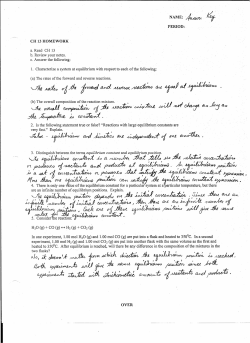 NAME: Answer Key
PERIOD:
CH 13 HOMEWORK
a. Read CH 13
b. Review your notes.
c. Answer the following:
1. Characterize a system at equilibrium with respect to each of the following:
(a) The rates of the forward and reverse reactions.
The rates of the forward and reverse reactions are equal at equilibrium.
(b) The overall composition of the reaction mixture.
The overall composition of the reaction mixture will not change as long as
the temperature is constant.
2. Is the following statement true or false? "Reactions with large equilibrium constants are
very fast." Explain.
False - equilibrium and kinetics are independent of one another.
3. Distinguish between the terms equilibrium constant and equilibrium position.
The equilibrium constant is a number that tells us the relative concentration
of products and reactants at equilibrium. An equilibrium position
is a set of concentrations that satisfy the equilibrium constant expression.
More than one equilibrium position can satisfy the equilibrium constant expression.
4. There is only one value of the equilibrium constant for a particular system at a particular temperature, but there
are an infinite number of equilibrium positions. Explain.
The equilibrium position depends on the initial concentration. Since there are an
infinite number of initial concentrations, then there are an infinite number of
equilibrium positions. Each one of these equilibrium positions will give the same
value for the equilibrium constant.
5. Consider the reaction
H₂O (g) + CO (g) ↔ H₂ (g) + CO₂ (g)
In one experiment, 1.00 mol H₂O (g) and 1.00 mol CO (g) are put into a flask and heated to 350°C. In a second
experiment, 1.00 mol H₂ (g) and 1.00 mol CO₂ (g) are put into another flask with the same volume as the first and
heated to 350°C. After equilibrium is reached, will there be any difference in the composition of the mixtures in the
two flasks?
No, it doesn't matter from which direction the equilibrium position is reached.
Both experiments will give the same equilibrium position since both
experiments started with stoichiometric amounts of reactants and products.
OVER